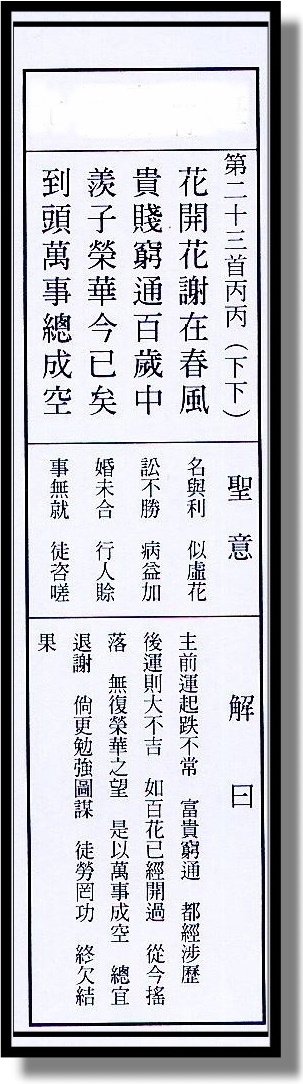 第二十三首丙丙（下下）
花開花謝在春風
貴賤窮通百歲中
羨子榮華今已矣
到頭萬事總成空
聖意
名與利　似虛花
訟不勝　病益加
婚未合　行人賒
事無就　徒咨嗟
解曰
主前運起跌不常　富貴窮通　都經涉歷
後運則大不吉　如百花已經開過　從今搖
落　無復榮華之望　是以萬事成空　總宜
退謝　倘更勉強圖謀　徒勞罔功　終欠結
果